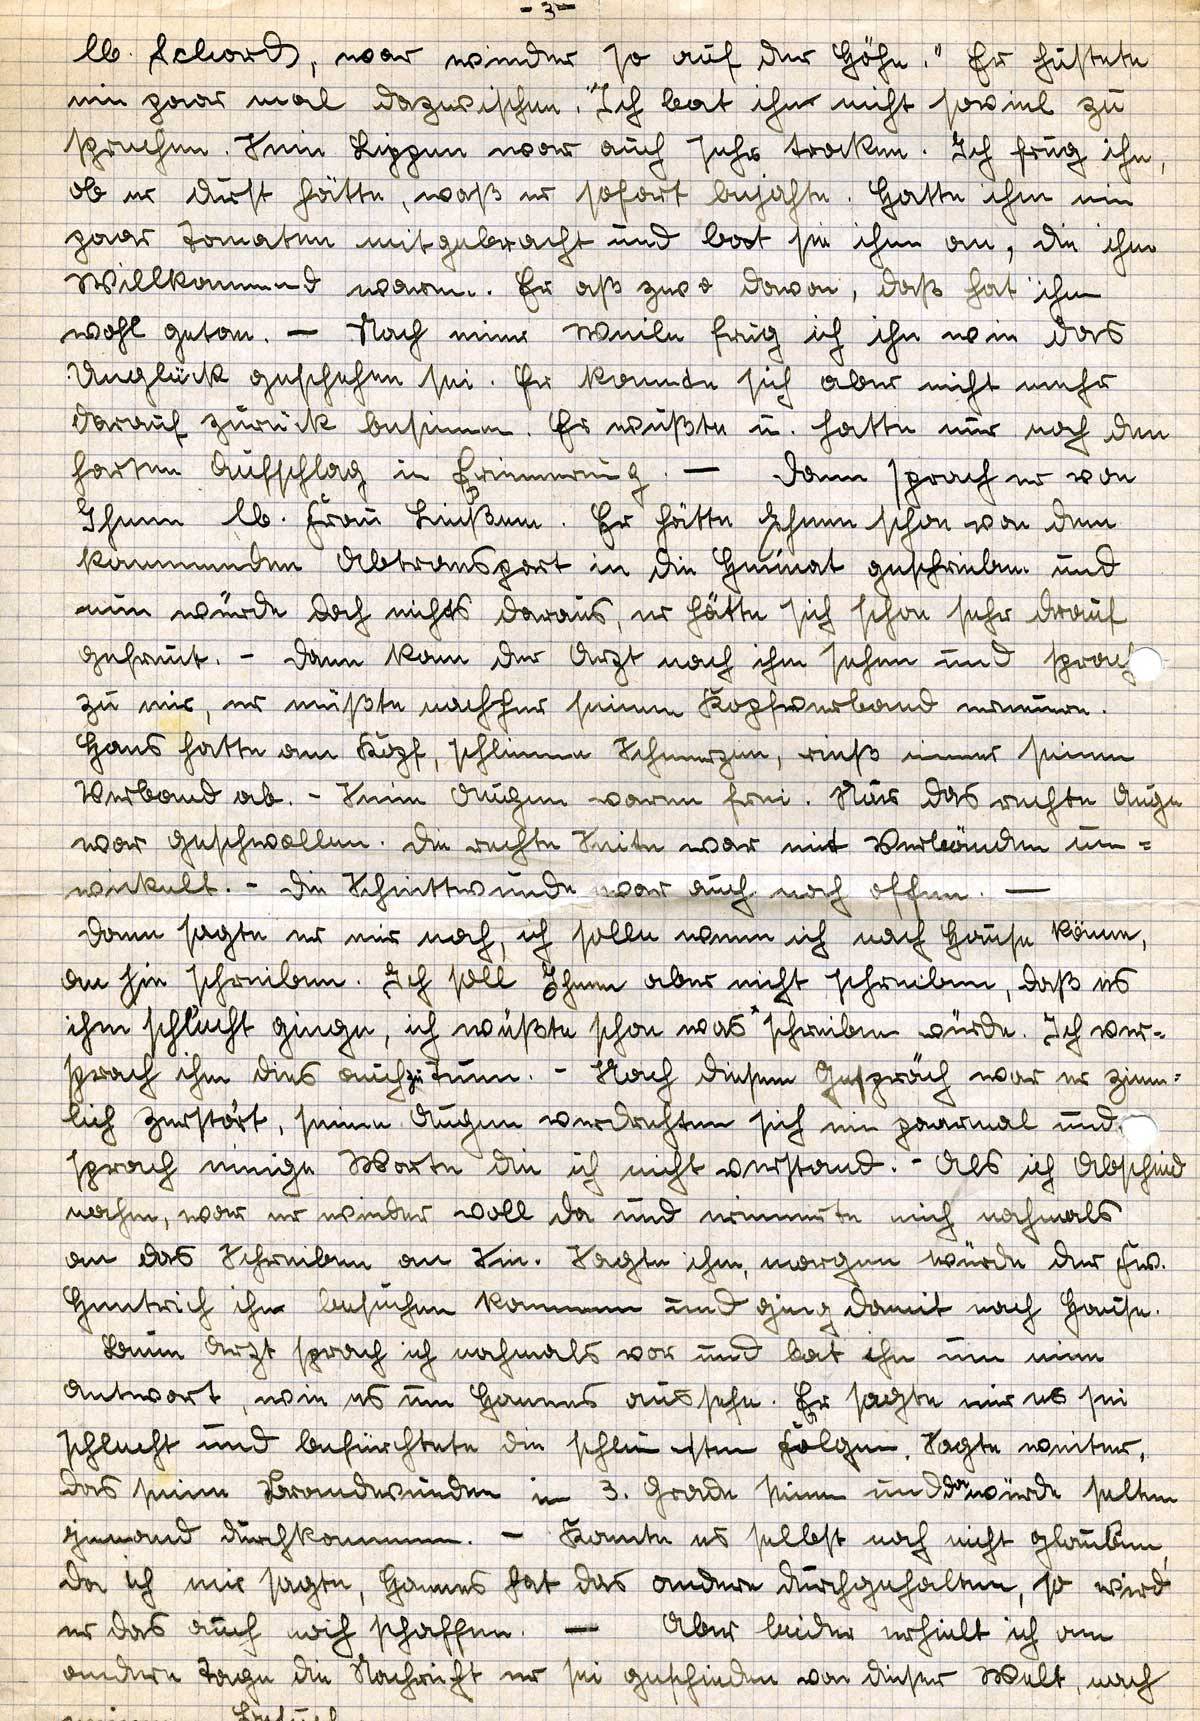 - 3 -
lb. Schord, war wieder so auf der Höhe." Er hustete
ein paar mal dazwischen. "Ich bat ihn nicht soviel zu
sprechen. Seine Lippen war auch sehr trocken. Ich frug ihn,
ob er durst hätte, waß er sofort bejahte. Hatte ihm ein
paar Tomaten mitgebracht und bot sie ihm an, die ihm
Willkommend waren. Er aß zwo davon, daß hat ihm
wohl getan. — Nach einer Weile frug ich ihn wie das
Unglück geschehen sei. Er konnte sich aber nicht mehr
darauf zurück besinnen. Er wußte u. hatte nur noch den
harten Aufschlag in Erinnerung. — Dann sprach er von
Ihnen lb. Frau Linßen. Er hätte Ihnen schon von dem
kommenden Abtransport in die Heimat geschrieben und
nun würde doch nichts daraus, er hätte sich schon sehr drauf
gefreut. - Dann kam der Arzt nach ihm sehen und sprach
zu mir, er müßte nachher seinen Kopfverband erneuern.
Hans hatte am Kopf, schlimme Schmerzen, rieß immer seinen
Verband ab. - Seine Augen waren frei. Nur das rechte Auge
war geschwollen. Die rechte Seite war mit Verbänden um=
wickelt. - Die Schnittwunde war auch noch offen. —
Dann sagte er mir noch, ich solle wenn ich nach Hause könne,
an Sie schreiben. Ich soll Ihnen aber nicht schreiben, daß es
ihm schlecht ginge, ich wüßte schon was schreiben würde. Ich ver=
sprach ihm dies auch zu Tuen. - Nach diesem Gespräch war er ziem=
lich zerstört, seine Augen verdrehten sich ein paarmal und
sprach einige Worte die ich nicht verstand. - Als ich Abschied
nahm, war er wieder voll da und erinnerte mich nochmals
an das Schreiben an Sie. Sagte ihm, morgen würde der Fw.
Hentrich ihn besuchen kommen und ging damit nach Hause.
Beim Arzt sprach ich nochmals vor und bat ihn um eine
Antwort, wie es um Hannes aussehe. Er sagte mir es sei
schlecht und befürchtete die schlimmsten Folgen. Sagte weiter,
das seine Brandwunden in 3. Grade seien und da würde selten
jemand durchkommen. - Konnte es selbst noch nicht glauben,
da ich mir sagte, Hannes hat das andere durchgehalten, so wird
er das auch noch schaffen. — Aber leider erhielt ich am
andern Tage die Nachricht er sei geschieden von dieser Welt, nach
meinem Besuch.